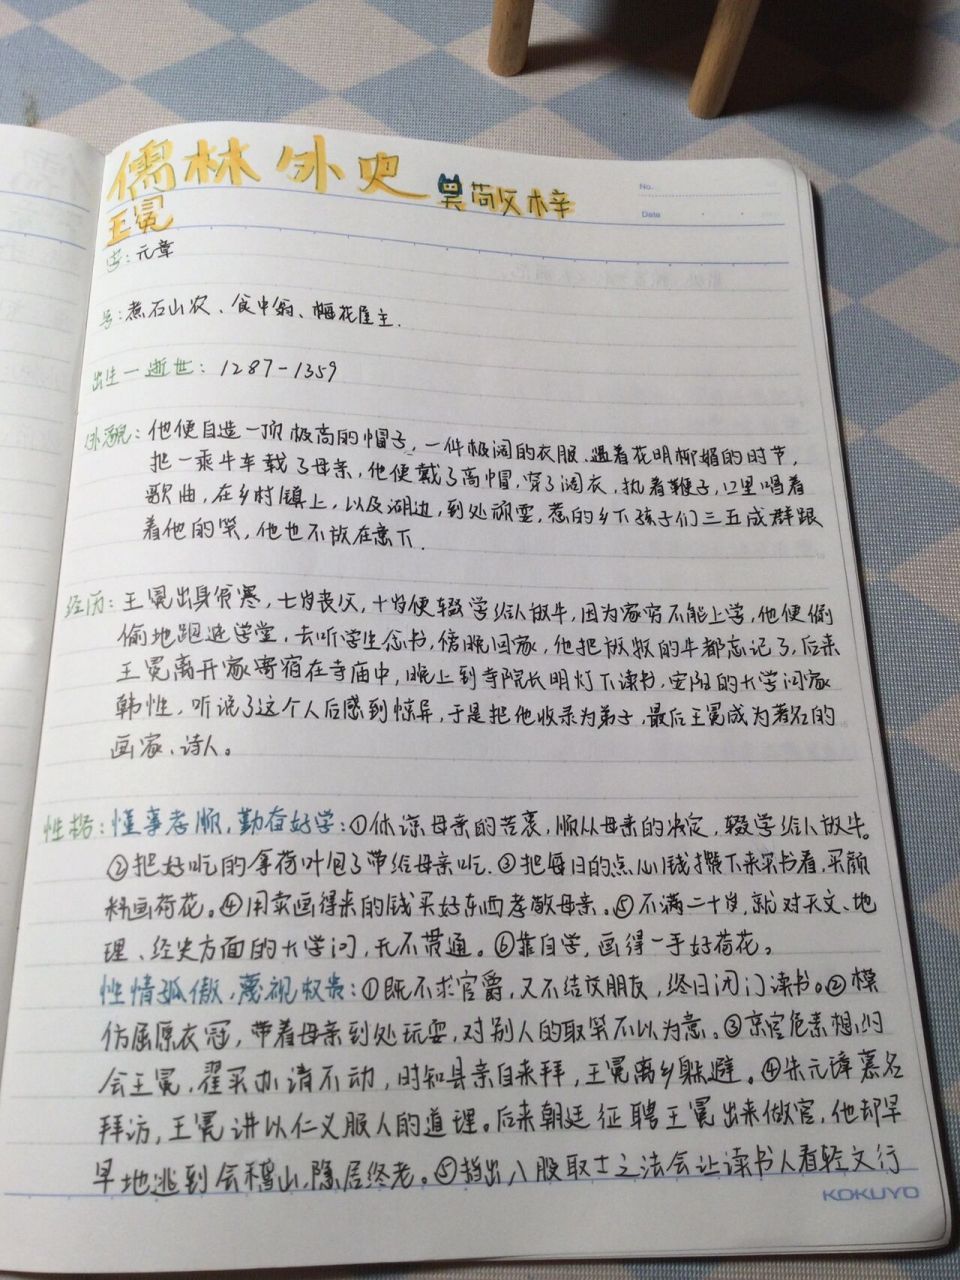 儒林外史 吴敬梓
No.
Date
王冕
字：元章
号：煮石山农、食中翁、梅花屋主.
出生—逝世：1287-1359
外貌：他便自造一顶极高的帽子，一件极阔的衣服，遇着花明柳媚的时节，
把一乘牛车载了母亲，他便戴了高帽，穿了阔衣，执着鞭子，口里唱着
歌曲，在乡村镇上，以及湖边，到处顽耍，惹的乡下孩子们三五成群跟
着他的笑，他也不放在意下.
经历：王冕出身贫寒，七岁丧父，十岁便辍学给人放牛，因为家穷不能上学，他便偷
偷地跑进学堂，去听学生念书，傍晚回家，他把放牧的牛都忘记了，后来
王冕离开家寄宿在寺庙中，晚上到寺院长明灯下读书，安阳的大学问家
韩性，听说了这个人后感到惊异，于是把他收录为弟子，最后王冕成为著名的
画家、诗人。
性格：懂事孝顺，勤奋好学：①体谅母亲的苦衷，顺从母亲的决定，辍学给人放牛。
②把好吃的拿荷叶包了带给母亲吃.③把每日的点心钱攒下来买书看，买颜
料画荷花。④用卖画得来的钱买好东西孝敬母亲。⑤不满二十岁，就对天文、地
理、经史方面的大学问，无不贯通。⑥靠自学，画得一手好荷花。
性情孤傲，蔑视权贵：①既不求官爵，又不结交朋友，终日闭门读书。②模
仿屈原衣冠，带着母亲到处玩耍，对别人的取笑不以为意。③京官危素想约
会王冕，翟买办请不动，时知县亲自来拜，王冕离乡躲避。④朱元璋慕名
拜访，王冕讲以仁义服人的道理。后来朝廷征聘王冕出来做官，他却早
早地逃到会稽山，隐居终老。⑤指出八股取士之法会让读书人看轻文行
KOKUYO